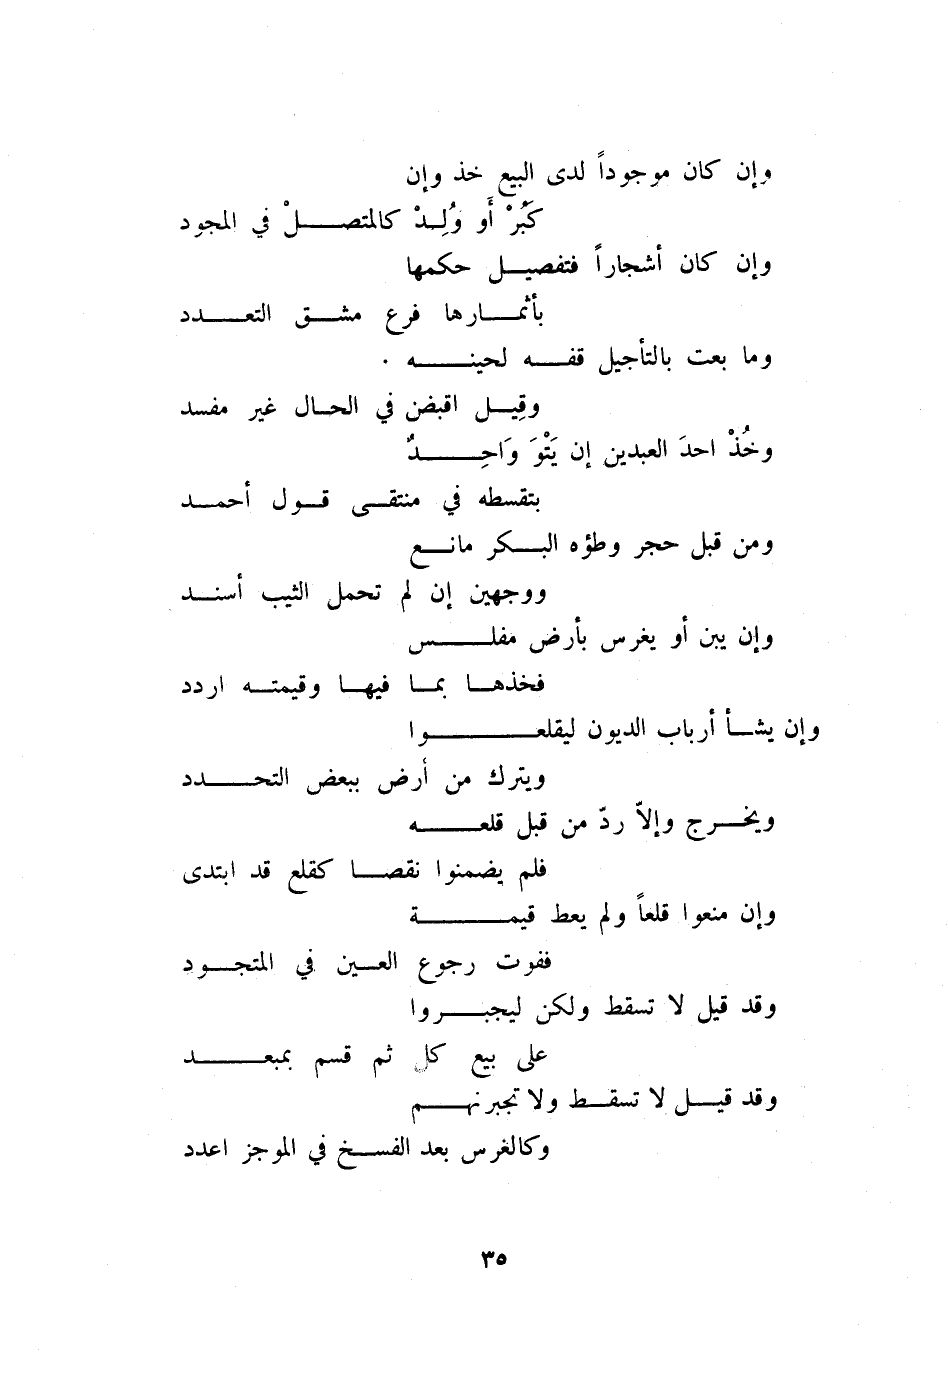 وإن كان موجوداً لدى البيع خذ وإن
كَبُرْ أَو وُلِدْ كالمتصلْ في المجود
وإن كان أشجاراً فتفصيل حكمها
بأثمارها فرع مشق التعدد
وما بعت بالتأجيل قفه لحينه .
وقِيل اقبض في الحال غير مفسد
وخُذْ احدَ العبدين إن يَتْوَ وَاحِدٌ
بتقسطه في منتقى قول أحمد
ومن قبل حجر وطؤه البكر مانع
ووجهين إن لم تحمل الثيب أسند
وإن يبن أو يغرس بأرض مفلس
فخذها بما فيها وقيمته اردد
وإن يشأ أرباب الديون ليقلعوا
ويترك من أرض ببعض التحدد
ويخرج وإلاّ ردّ من قبل قلعه
فلم يضمنوا نقصا كقلع قد ابتدى
وإن منعوا قلعاً ولم يعط قيمة
ففوت رجوع العين في المتجود
وقد قيل لا تسقط ولكن ليجبروا
على بيع كل ثم قسم بمبعد
وقد قيل لا تسقط ولا تجبرنهم
وكالغرس بعد الفسخ في الموجز اعدد
٣٥